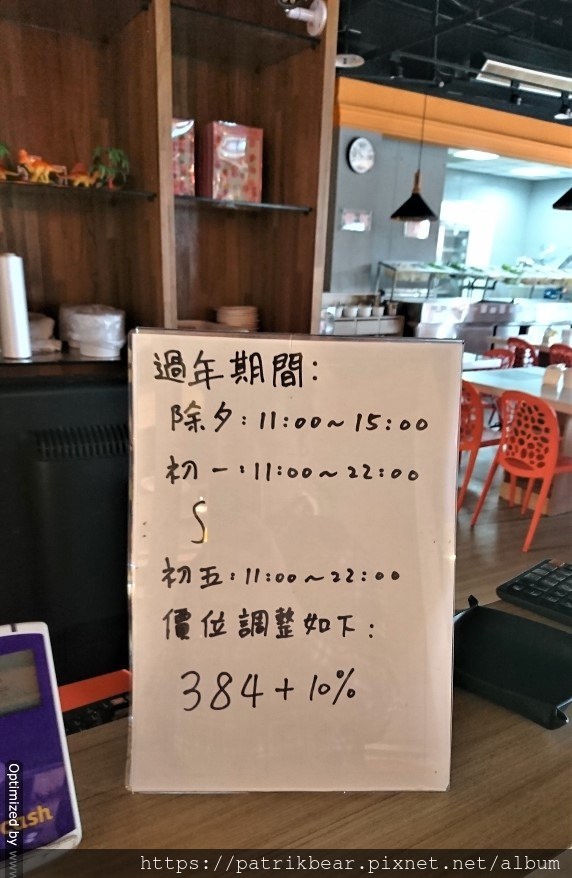 過年期間:
除夕:11:00~15:00
初一:11:00~22:00
∫
初五:11:00~22:00
價位調整如下:
384+10%
ash
Optimized by www
https://patrikbear.pixnet.net/album